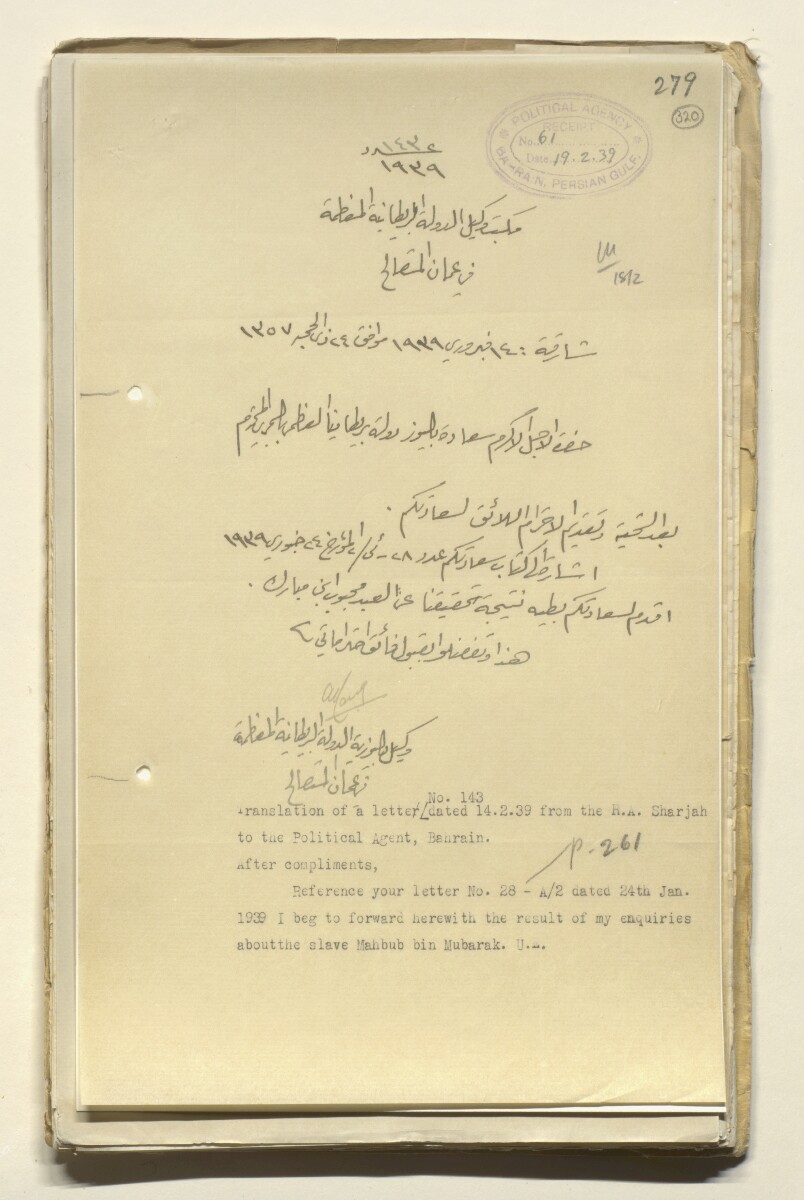 279
320
POLITICAL AGENCY
RECEIPT
No. 61
Date 19.2.39
BAHRAIN, PERSIAN GULF.
١٤٣
١٩٣٩
مكتب وكيل الدولة البريطانية المعظمة
في عمان المتصالح
18/2
شارقة: ١٤ فبروري ١٩٣٩ موافق ٢٤ ذي الحجه ١٣٥٧
حضرة الاجل الاكرم سعادة باليوز دولة بريطانيا العظمى بالبحرين المحترم
بعد التحية وتقديم الاحترام اللائق لسعادتكم.
اشارة الى كتاب سعادتكم عدد ٢٨ - المؤرخ ٢٤ جنوري ١٩٣٩
اقدم لسعادتكم بطيه نتيجة تحقيقنا عن العبد محبوب ابن مبارك.
هذا وتفضلوا بقبول فائق احتراماتي
وكيل باليوزية الدولة البريطانية المعظمة
في عمان المتصالح
No. 143
Translation of a letter/dated 14.2.39 from the R.A. Sharjah
to the Political Agent, Bahrain.
p. 261
After compliments,
Reference your letter No. 28 - A/2 dated 24th Jan.
1939 I beg to forward herewith the result of my enquiries
aboutthe slave Mahbub bin Mubarak. U.E.